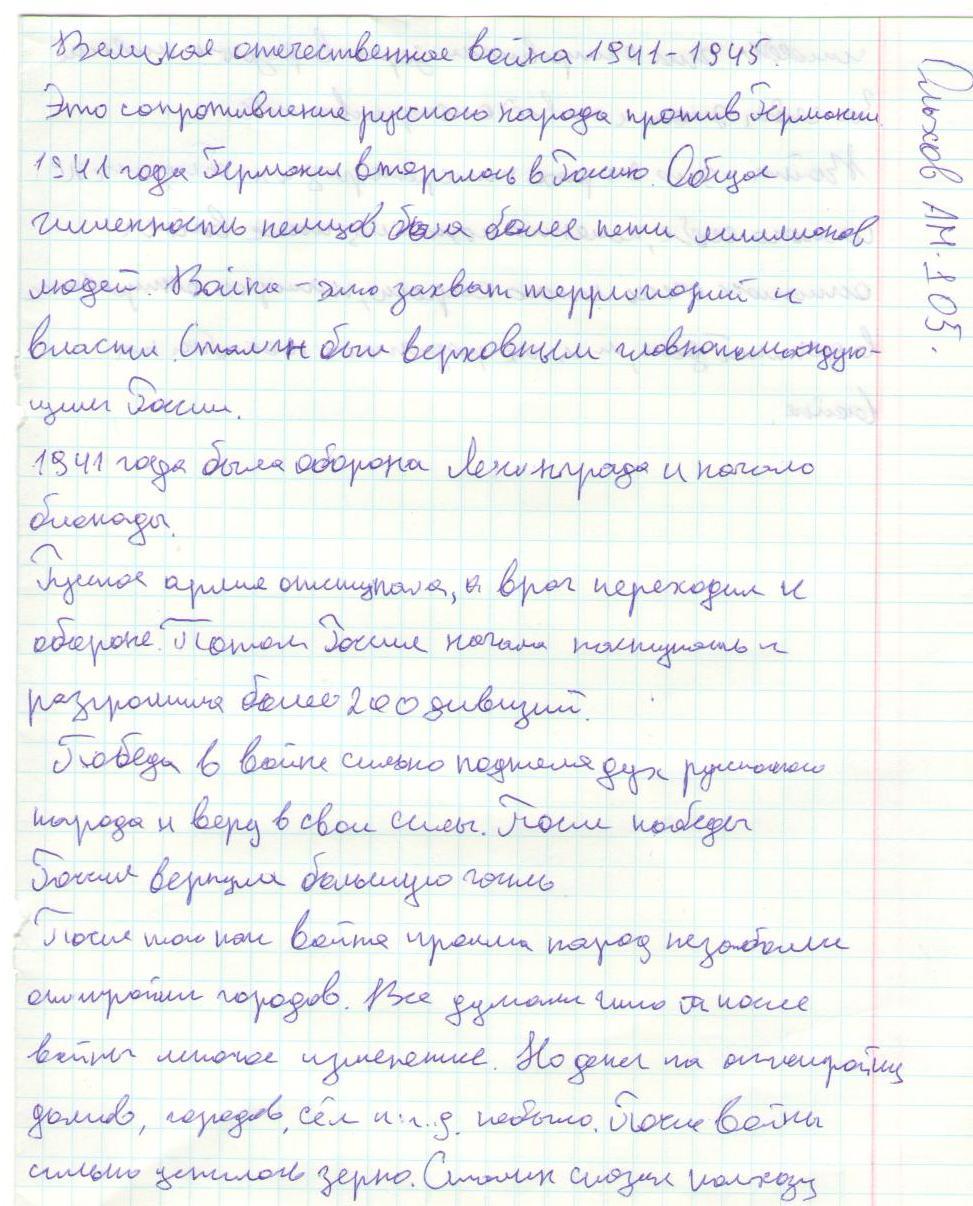 Великая отечественная война 1941-1945.
Это сопротивление русского народа против Германии.
1941 года Германия вторглась в Россию. Общая
численность немцов была более пяти миллионов
людей. Война - это захват территорий и
власти. Сталин был верховным главнокомандую-
щим России.
1941 года была оборона Ленинграда и начало
блокады.
Русская армия отступала, а враг переходил к
обороне. Потом Россия начала наступать и
разгромила более 200 дивизий.
Победа в войне сильно подняла дух русского
народа и веру в свои силы. После победы
Россия вернула большую часть
После того как война прошла народ
городов. Все думали что после
войны многое изменение. Но денег на отстройку
домов, городов, сёл и.т.д. небыло. После войны
сильно ценилось зерно. Сталин сказал колхозу
АМ-105.